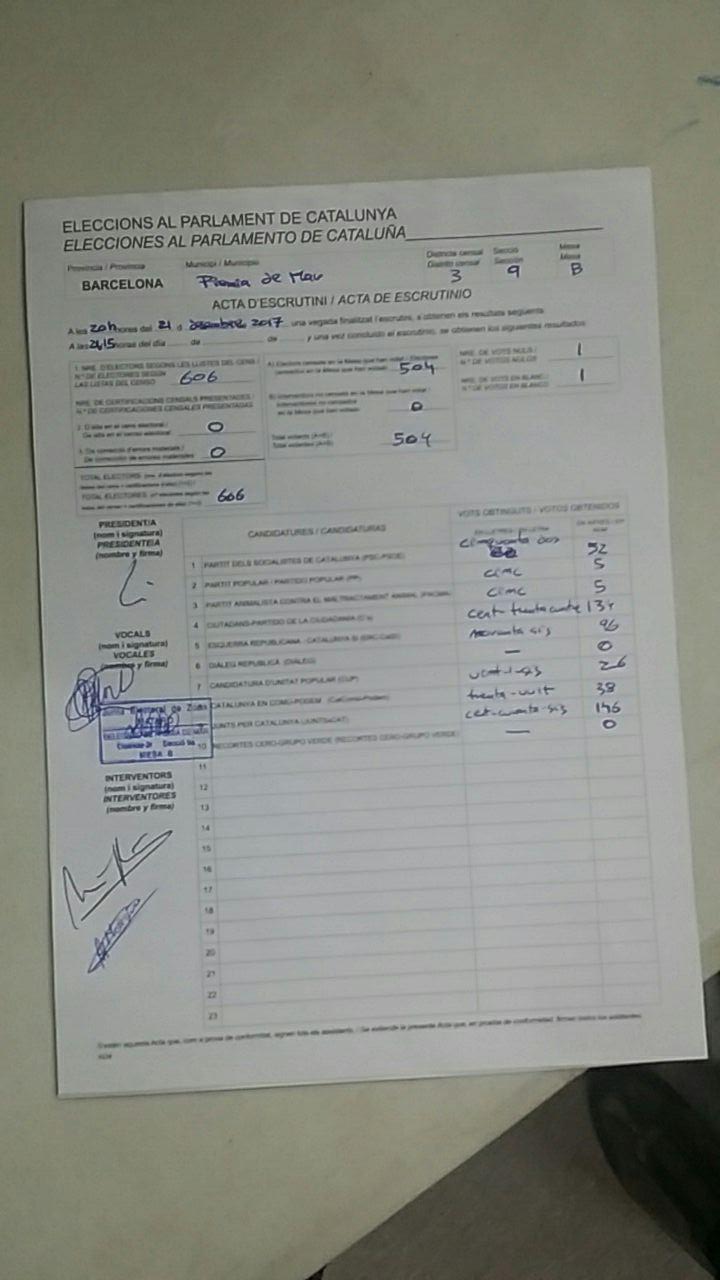 ELECCIONS AL PARLAMENT DE CATALUNYA
ELECCIONES AL PARLAMENTO DE CATALUÑA
Província / Provincia Municipi / Municipio Districte censal Secció Mesa
Distrito censal Sección Mesa
BARCELONA de Mar 3 9 B
ACTA D'ESCRUTINI / ACTA DE ESCRUTINIO
A les 20h hores del 21 d desembre 2017 una vegada finalitzat l'escrutini, s'obtenen els resultats següents
A las horas del día de de y una vez concluido el escrutinio, se obtienen los siguientes resultados
1. NRE. D'ELECTORS SEGONS LES LLISTES DEL CENS /
N.º DE ELECTORES SEGÚN
LAS LISTAS DEL CENSO 606
NRE. DE CERTIFICACIONS CENSALS PRESENTADES /
N.º DE CERTIFICACIONES CENSALES PRESENTADAS
2. D'alta en el cens electoral /
De alta en el censo electoral 0
3. De correcció d'errors materials /
De corrección de errores materiales 0
TOTAL ELECTORS
TOTAL ELECTORES 606
A) Electors censats en la Mesa que han votat / Electores
censados en la Mesa que han votado 504
B) Interventors no censats en la Mesa que han votat /
Interventores no censados
en la Mesa que han votado 0
Total votants (A+B) /
Total votantes (A+B) 504
NRE. DE VOTS NULS /
N.º DE VOTOS NULOS 1
NRE. DE VOTS EN BLANC /
N.º DE VOTOS EN BLANCO 1
PRESIDENT/A
(nom i signatura)
PRESIDENTE/A
(nombre y firma)
VOCALS
(nom i signatura)
VOCALES
(nombre y firma)
Junta Electoral de Zona
Districte 3r Secció 9a
MESA B
INTERVENTORS
(nom i signatura)
INTERVENTORES
(nombre y firma)
CANDIDATURES / CANDIDATURAS VOTS OBTINGUTS / VOTOS OBTENIDOS
1 PARTIT DELS SOCIALISTES DE CATALUNYA (PSC-PSOE) cinquanta dos 52
2 PARTIT POPULAR / PARTIDO POPULAR (PP) cinc 5
3 PARTIT ANIMALISTA CONTRA EL MALTRACTAMENT ANIMAL (PACMA) cinc 5
4 CIUTADANS-PARTIDO DE LA CIUDADANÍA (C's) 134
5 ESQUERRA REPUBLICANA - CATALUNYA SÍ (ERC-CatSÍ) noranta sis 96
6 DIÀLEG REPUBLICÀ (DIÀLEG) — 0
7 CANDIDATURA D'UNITAT POPULAR (CUP) vint-i-sis 26
8 CATALUNYA EN COMÚ-PODEM (CatComú-Podem) trenta-vuit 38
9 JUNTS PER CATALUNYA (JUNTSxCAT) 146
10 RECORTES CERO-GRUPO VERDE (RECORTES CERO-GRUPO VERDE) — 0
11
12
13
14
15
16
17
18
19
20
21
22
23